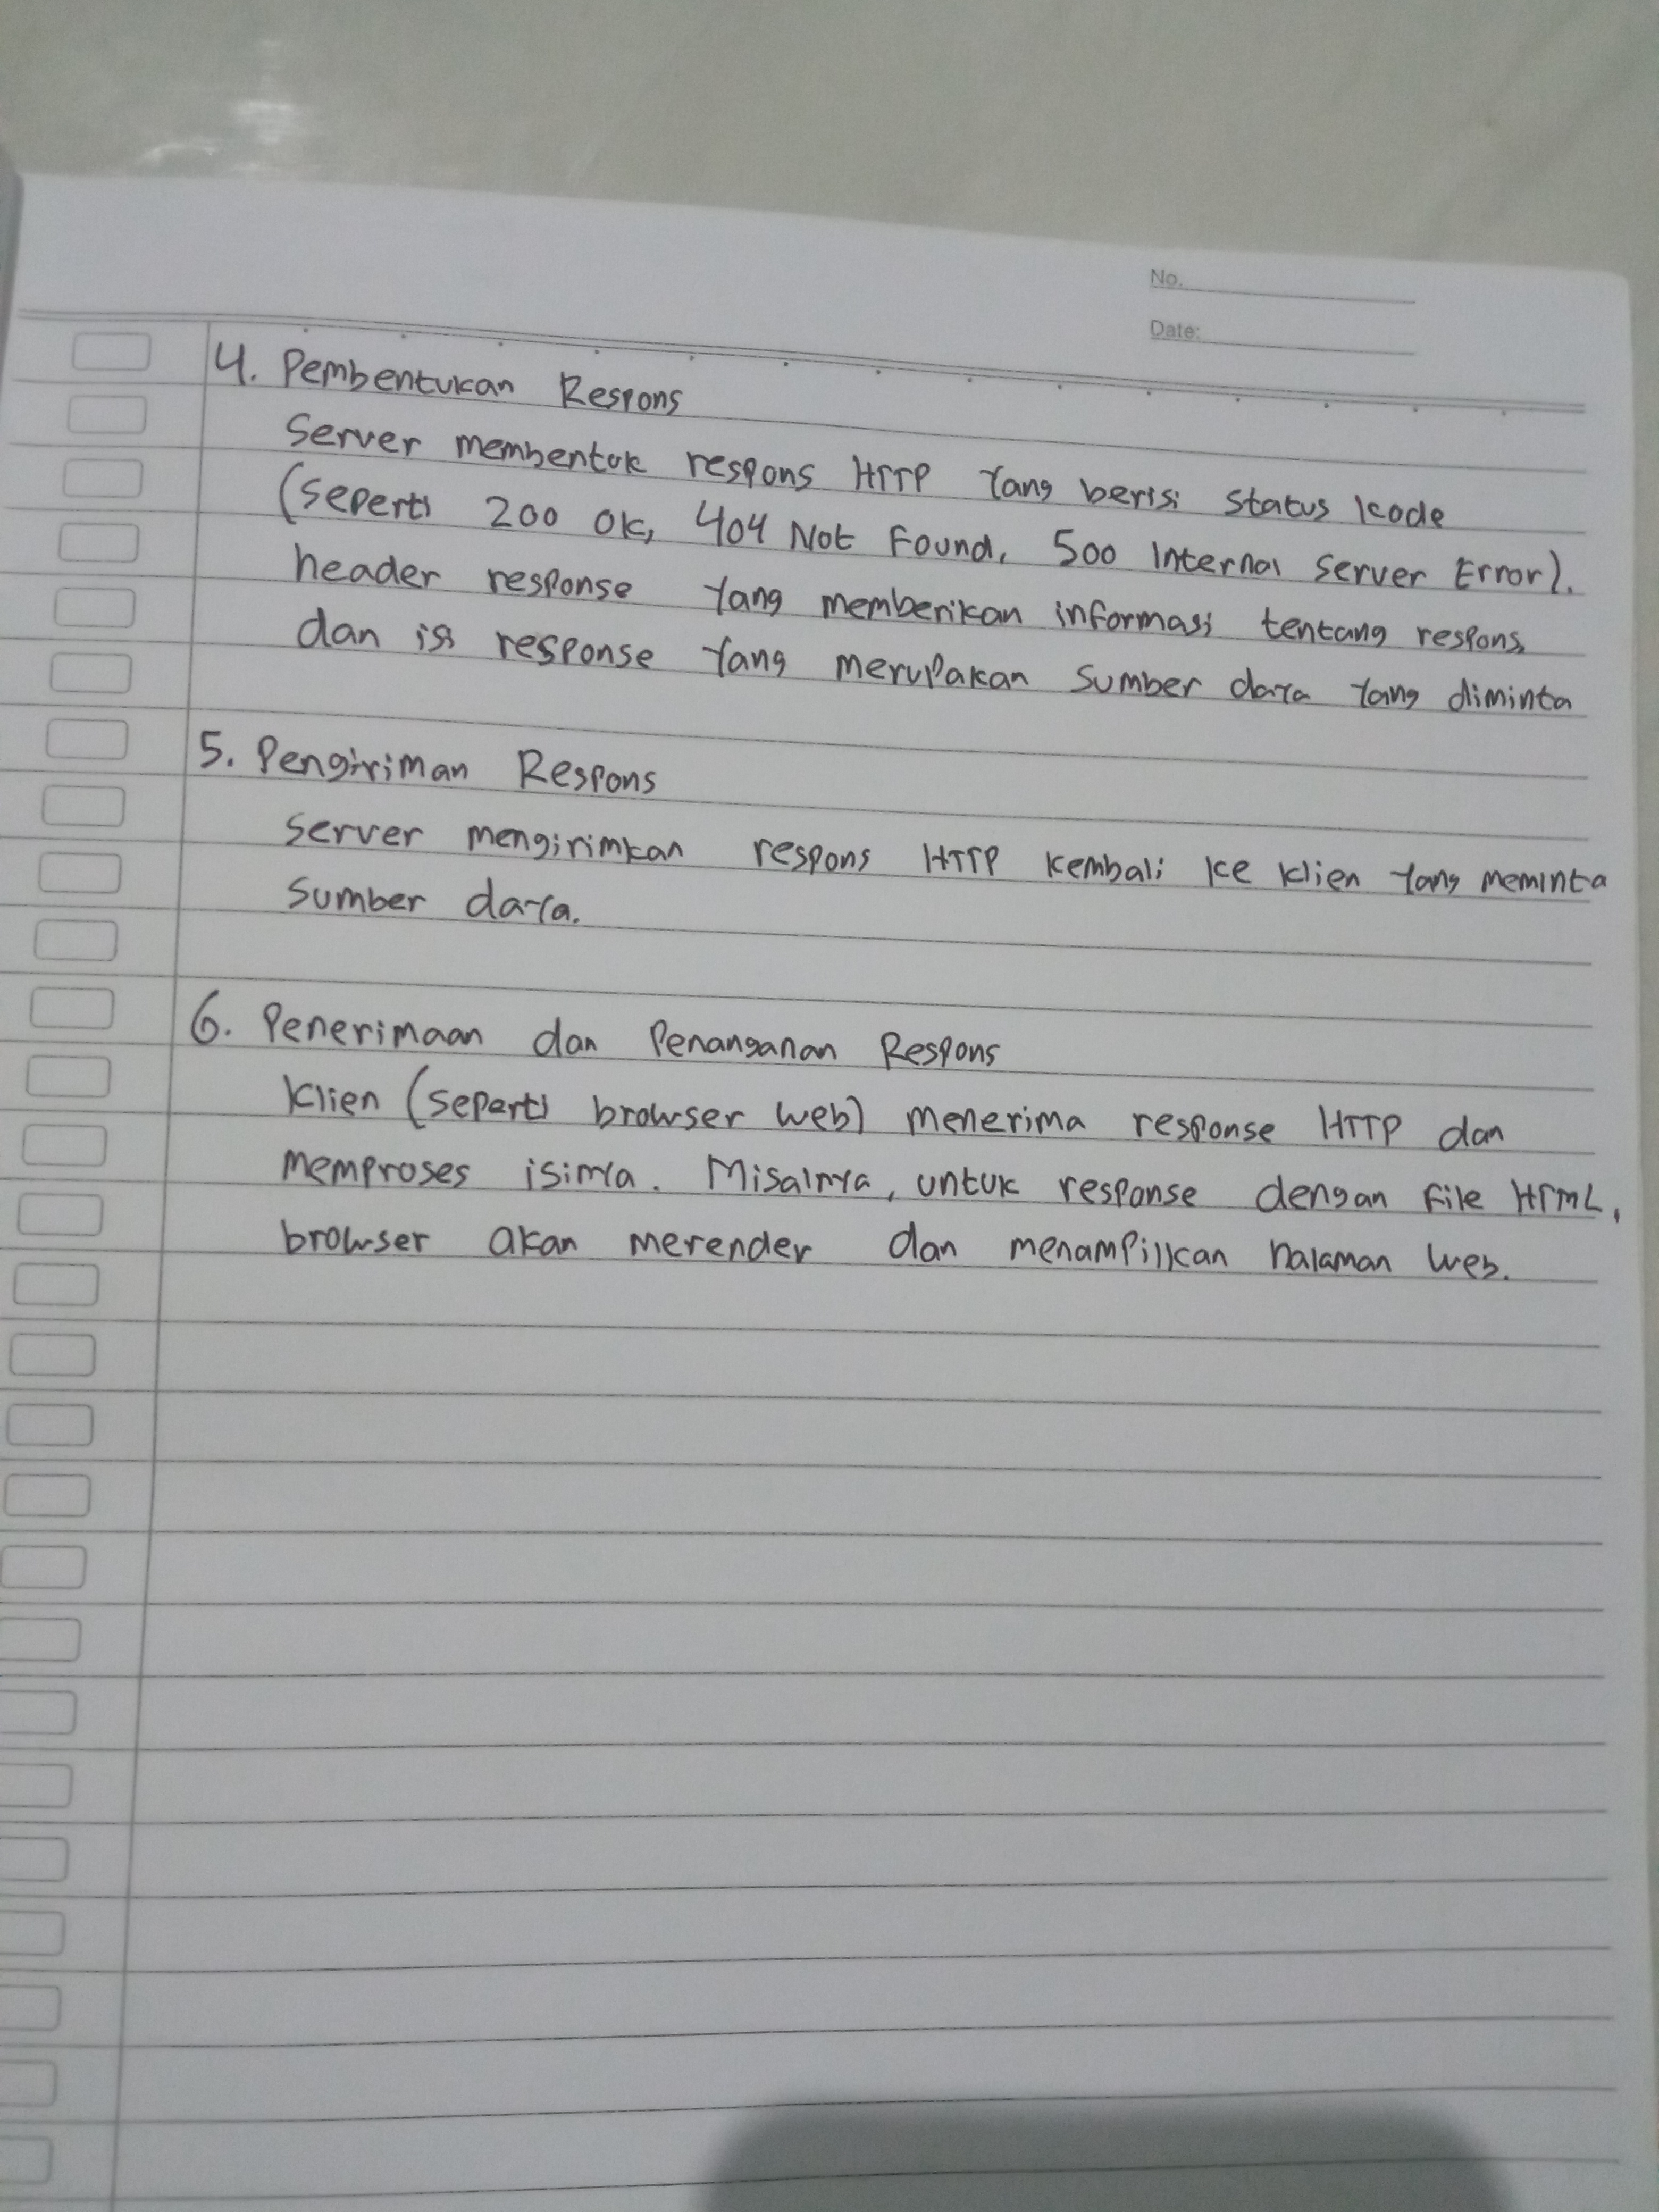 No.
Date:
4. Pembentukan Respons
Server membentuk respons HTTP yang berisi status kode
(seperti 200 OK, 404 Not Found, 500 Internal Server Error).
header response yang memberikan informasi tentang respons,
dan isi response yang merupakan sumber daya yang diminta
5. Pengiriman Respons
Server mengirimkan respons HTTP kembali ke klien yang meminta
sumber daya.
6. Penerimaan dan Penanganan Respons
Klien (seperti browser web) menerima response HTTP dan
memproses isinya. Misalnya, untuk response dengan file HTML,
browser akan merender dan menampilkan halaman web.